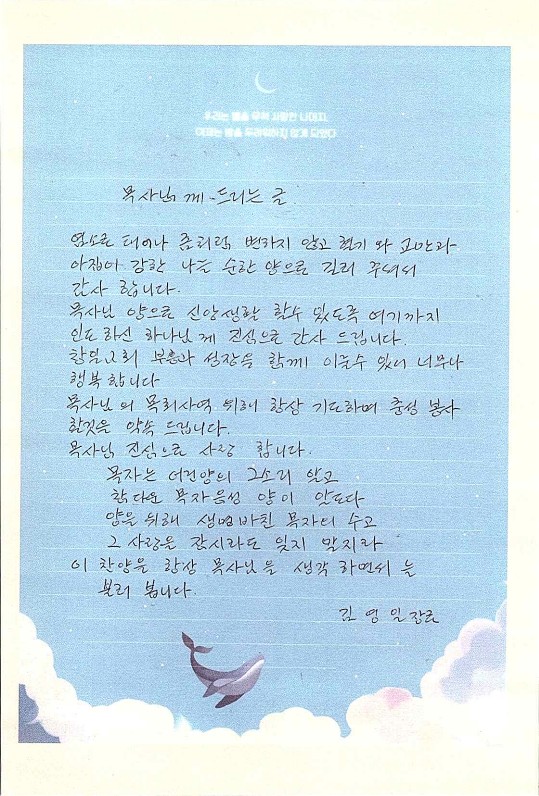 우리는 별을 무척 사랑한 나머지,
이제는 밤을 두려워하지 않게 되었다
목사님께 - 드리는 글
염소로 태어나 좀처럼 변하지 않고 혈기와 교만과
아집이 강한 나를 순한 양으로 길러 주셔서
감사 합니다.
목사님 양으로 신앙생활 할수 있도록 여기까지
인도하신 하나님께 진심으로 감사 드립니다.
교회 부흥과 성장을 함께 이룰수 있어 너무나
행복합니다
목사님의 목회사역 위해 항상 기도하며 충성 봉사
할것을 약속 드립니다.
목사님 진심으로 사랑 합니다.
목자는 어진양의 그소리 알고
참다운 목자음성 양이 안도다
양을 위해 생명바친 목자의 수고
그 사랑을 잠시라도 잊지 말지라
이 찬양을 항상 목사님을 생각 하면서 늘
불러 봅니다.
김영일 장로